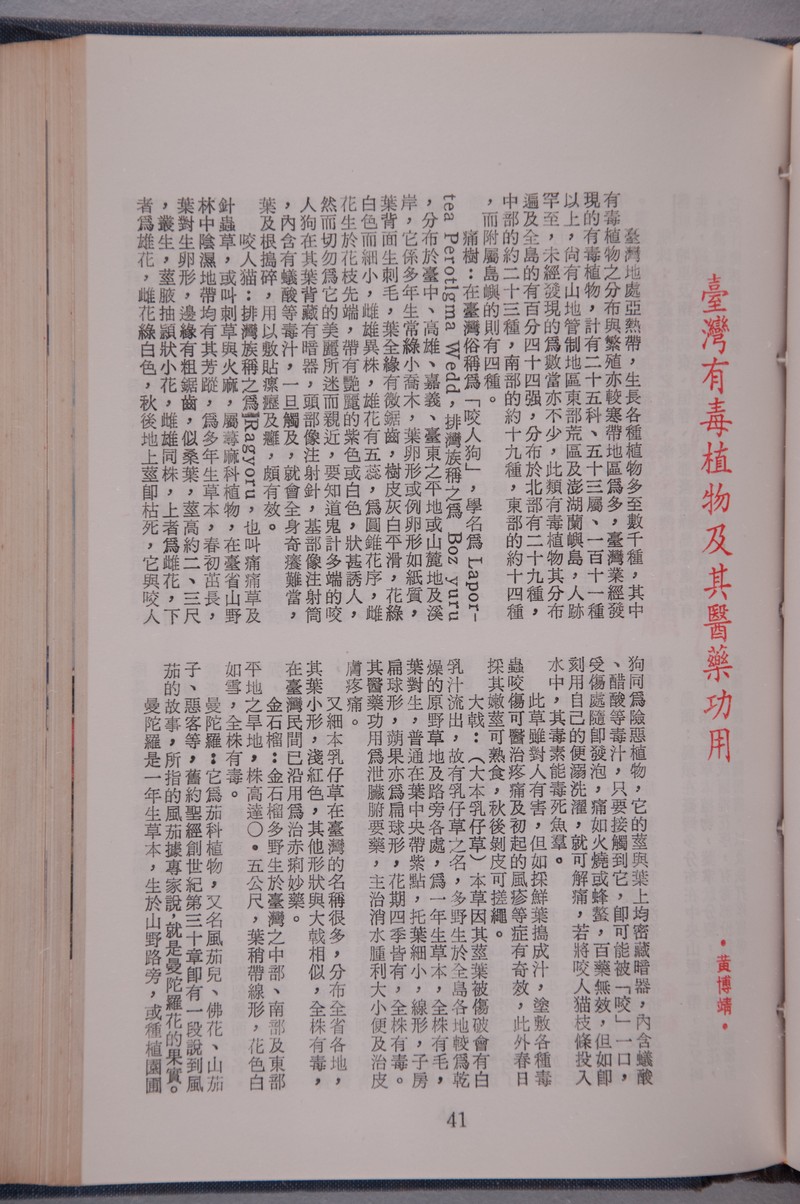 臺灣有毒植物及其醫藥功用
•黃博靖•
臺灣地處亞熱帶，生長各種植物多至數千種，其中
有毒植物之分布與繁殖亦較寒帶地區爲多，臺灣業經發
現的有毒植物，計有二十五科、五十三屬、一百十一種
以上，尙有山地管制地區東部荒區及澎湖蘭嶼島，人跡
罕至，未經發現的爲數當亦不少，此類有毒植物其分布
遍及全島的有百分四十四强，分布於北部有二十九種，
中部的約二十三種，南部的約十九種，東部的約十四種
，而附屬島嶼的則有四種。
痛樹：在臺灣俗稱爲「咬人狗」，學名爲 Lapor-
tea Perotigma Wedd，排灣族稱之爲 Boz yuru
，分布於臺中、高雄、嘉義、臺東之平地或山麓地及溪
岸，它係多年生常綠小喬木，葉卵形或例卵形如紙質，
葉背面生刺毛，葉全緣有微鋸齒，樹皮灰白平滑，花綠
白色而細小，雌雄異株，雄花有五蕊，爲圓錐花序，雌
花生於花枝先端，帶有艷麗的紫色或白色，狀甚誘人，
然而切勿爲它的美麗所迷而親近，要知道鬼計多端的咬
人狗在其葉背藏有暗器，頭部像注射針，基部像注射筒
，內含有蟻酸等毒汁，一旦觸及，就會全身奇癢難當，
葉及根搗碎，用以敷貼瘰癧及癰，頗有效。
咬人猫：排灣族稱之爲Ragyoru，也叫痛痛草及
針蟲草，或叫刺草與火麻，屬蕁麻科植物，在臺省山野
林中陰濕地帶均有其芳蹤，爲多年生草本，春初茁長，
葉對生卵形，邊緣有粗鋸齒，似桑葉，莖高約二、三尺
，叢生，莖腋抽顯狀小花，雌雄同株，上者爲雌花，下
者爲雄花，雌花綠白色，秋後地上莖卽枯死，它與咬人
狗同爲險惡植物，它的莖與葉上均密藏暗器，內含蟻酸
、醋酸等毒汁，只要接觸到它，卽可能被「咬」一口，
受傷處隨卽發泡，痛如火燒或蜂螫，百藥無效，但如卽
刻用自己的便溺洗濯，就可解痛，若將咬人猫枝條投入
水中，其毒素能毒死魚羣。
此草雖對人有害，但如採鮮葉搗成汁，塗敷各種毒
蟲咬傷可醫治疼痛及初起的風疹等症有奇效，此外春日
採其嫩莖可熟食，秋後剝皮可搓繩。
大戟：（大本乳仔草）本草因其莖葉被傷破會有白
乳汁流出，故有乳仔草之名，多野生於全島各地較爲乾
燥的原野草地及路旁各處，爲一年生草本，全株有毛，
葉對生，普通在葉中央帶紫點，托葉細小，線形，子房
扁球形，蒴果亦爲扁球形，花期四季皆有，全株有毒。
其醫藥功用爲泄臟腑要藥，主治消水腫利大小便及治皮
膚疼痛。
又細本乳仔草在臺灣的名稱很多，分布全省各地，
其葉小形，淺紅色，其他形狀與大戟相似，全株有毒，
在臺灣民間已沿用爲治赤痢妙藥。
金石榴：金石榴多野生於臺灣之中部、南部及東部
平地之旱地，株高達○・五公尺，葉稍帶線形，花色白
如雪，全株有毒。
曼陀羅：它爲茄科植物，又名風茄兒、佛花、山茄
子、惡客等，舊約聖經創世紀第三十章卽有一段說到風
茄的故事，所指的風茄據專家說，就是曼陀羅花的果實。
曼陀羅是一年生草本，生於山野路旁，或種植園圃
41